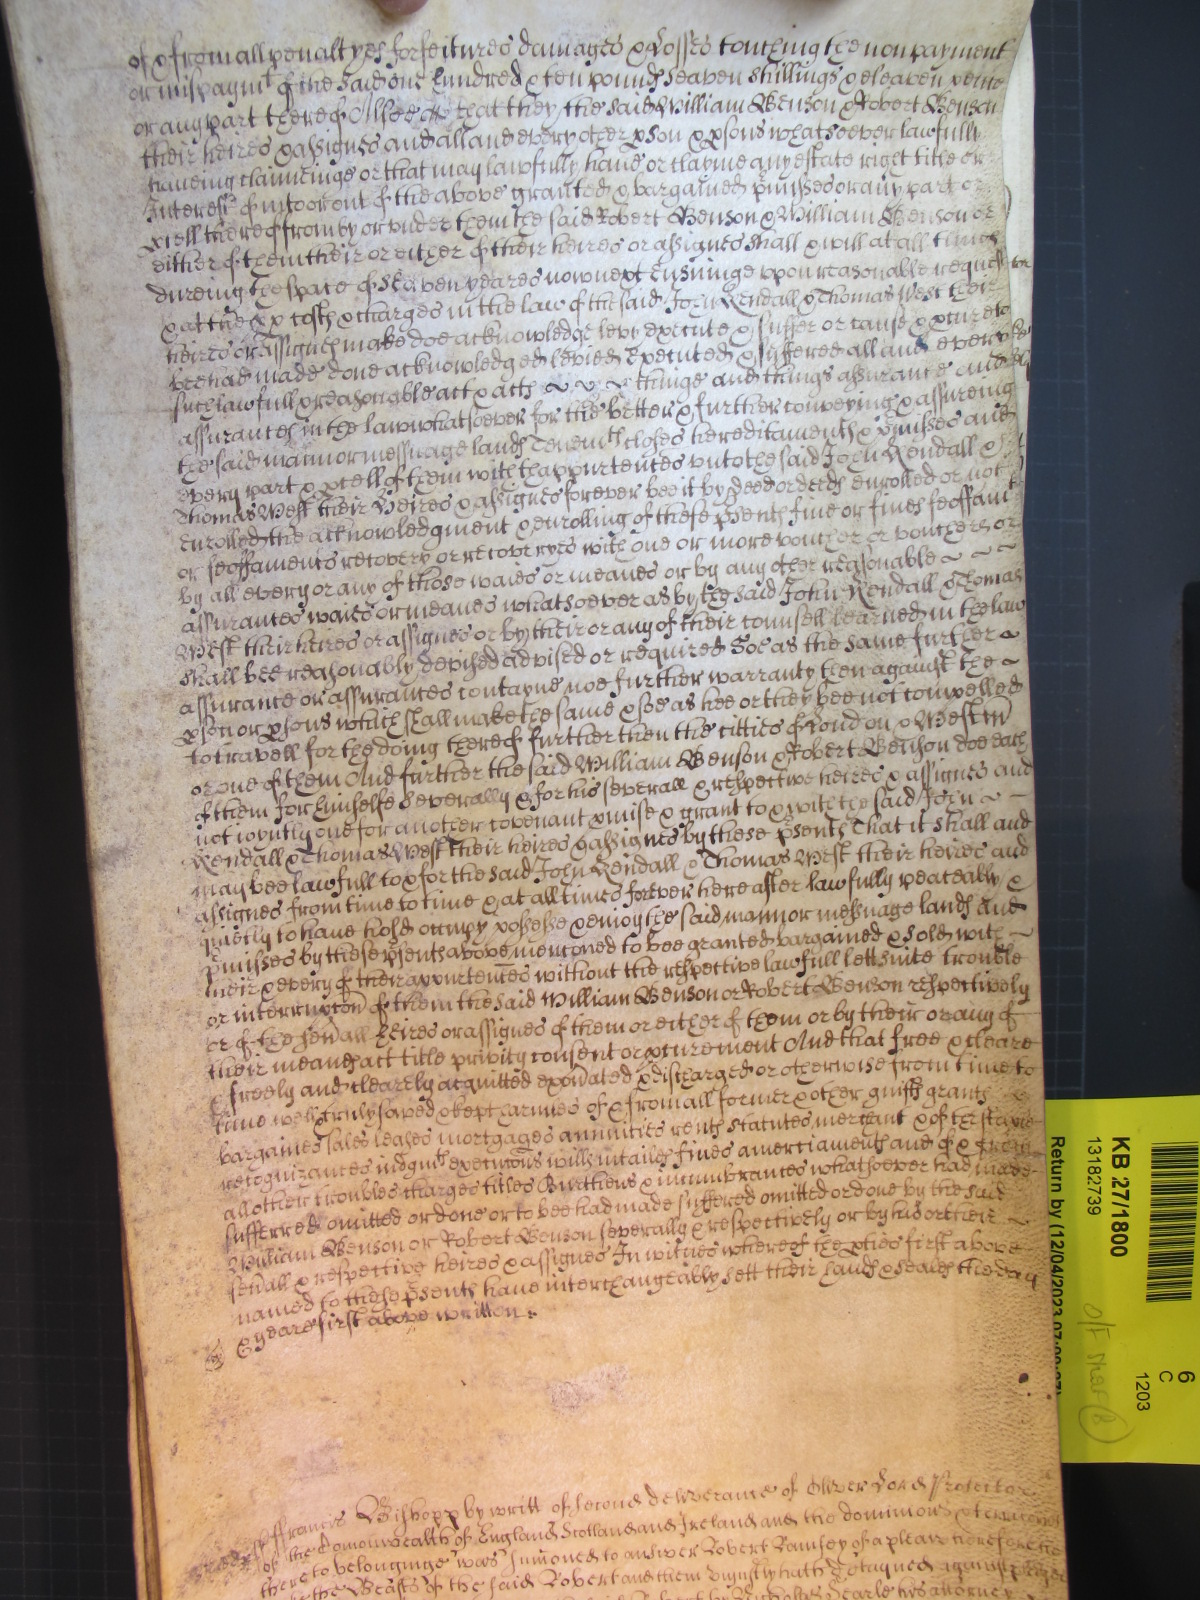 of & from all penaltyes forfeitures damages & Losses touching the non payment
or mispaymt of the said one hundred & ten pounds seaven shillings & eleaven pence
or any part thereof Allsoe that they the said William Benson & Robert Benson
their heires & assignes and all and every other pson & psons whatsoever lawfully
haveing claimeinge or that may lawfully have or clayme any estate right title or
Interest of in to or out of the above granted & bargained pmisses or any part or
pcell thereof from by or under them the said Robert Benson & William Benson or
either of them their or either of their heires or assignes shall & will at all times
dureing the space of Seaven yeares now next Ensuinge upon reasonable request
& at the pp costs & charges in the law of the said John Kendall & Thomas West their
heires or assignes make doe acknowledge levy execute & suffer or cause & pcure to
bee had made done acknowledged levied Executed & suffered all and every
such lawfull & reasonable act & acts thinge and things assurance and
assurances in the law whatsoever for the better & further conveying & assureing
the said mannor messuage lands Tenemts closes hereditaments & pmisses and
every part & pcell of them with thappurtences unto the said John Kendall &
Thomas West their Heires & assignes forever bee it by deed or deeds enrolled or not
Enrolled the acknowledgment & enrolling of these psents fine or fines feoffamt
or feoffaments recovery or recoveryes with one or more voucher or vouchers or
by all every or any of those waies or meanes or by any other reasonable
assurances waies or meanes whatsoever as by the said John Kendall & Thomas
West their heires or assignes or by their or any of their councell learned in the law
shall bee reasonably devised advised or required Soe as the same further
assurance or assurances contayne noe further warranty then against the
pson or psons which shall make the same & soe as hee or they bee not compelled
to travell for the doing thereof further then the citties of London & Westmr
or one of them And further the said William Benson & Robert Benson doe each
of them for himselfe severally & for his severall & respective heires & assignes and
not ioyntly one for another covenant pmise & grant to & with the said John
Kendall & Thomas West their heires & assignes by these psents That it shall and
may bee lawfull to & for the said John Kendall & Thomas West their heires and
assignes from time to time & at all times forever here after lawfully peaceably &
quietly to have hold occupy possesse & enioy the said mannor messuage lands and
pmisses by these psents above mencioned to bee granted bargained & sold with
their & every of their appurtences without the respective lawfull lett suite trouble
or interrupcon of them the said William Benson or Robert Benson respectively
or of the sevall heires or assignes of them or either of them or by their or any of
their meanes act title privity consent or pcurement And that free & cleare
& freely and clearely acquitted exonated & discharged or otherwise from time to
time well & truly saved & kept harmles of & from all former & other guifts grants
bargaines sales leases mortgages annuities rents statutes merchant & of the staple
recognizances iudgmts execucons wills intailes fines amerciaments and of &
all other troubles charges titles Burthens & incumbrances whatsoever had made
suffered omitted or done or to bee had made suffered omitted or done by the said
William Benson or Robert Benson severally & respectively or by his or their
sevall & respective heires & assignes In witnes whereof the pties first above
named to these psents have interchangeably sett their hands & seales the day
& yeare first above written

Francis Bishopp by writt of second deliverance of Oliver Lord Protector
of the Comonwealth of England Scotland and Ireland and the dominions & territories
thereto belonginge was sumoned to answer Robert Ramsey of a plea wherefore he
the Beasts of the said Robert and them uniustly hath detayned against pledges
KB 27/1800
13182739
Return by (12/04/2023
6
C
1203